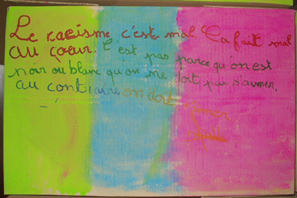 Le racisme, c'est mal Ca fait mal
au cœur. C'est pas parce qu'on est
noir ou blanc qu'on ne doit pas s'aimer,
au contraire on doit